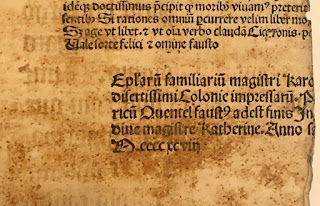 idēq̄ doctissimus p̄cipit ꝙ moribꝰ viuam? preterit
sentibꝰ Si rationes omniū ꝑcurrere velim liber mo
Sz age vt lubet. ⁊ vt oīa verbo claudā Ciceronis. p
Uale sorte felici ⁊ omine fausto
Epl̄arū familiariū magistri Karo
disertissimi Colonie impressarū. P
ricū Quentel faustꝰ adest finis In
diue magistre Katherine. Anno s
D. cccc xcviij